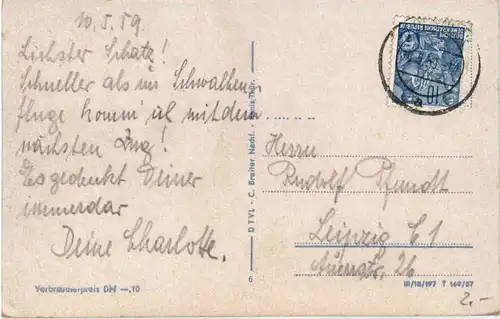 10.5.59.
Liebster Schatz!
Schneller als im Schwalben-
fluge komm' ich mit dem
nächsten Zug!
Es gedenkt Deiner
immerdar
Deine Charlotte.
Verbraucherpreis DM —,10
D TVL · C. Breiter Nachf.
6
DEUTSCHE
DEMOKRATISCHE REPUBLIK
10
Herrn
Rudolf Pfundt
Leipzig C 1
26
III/18/197 T 160/57
2.-